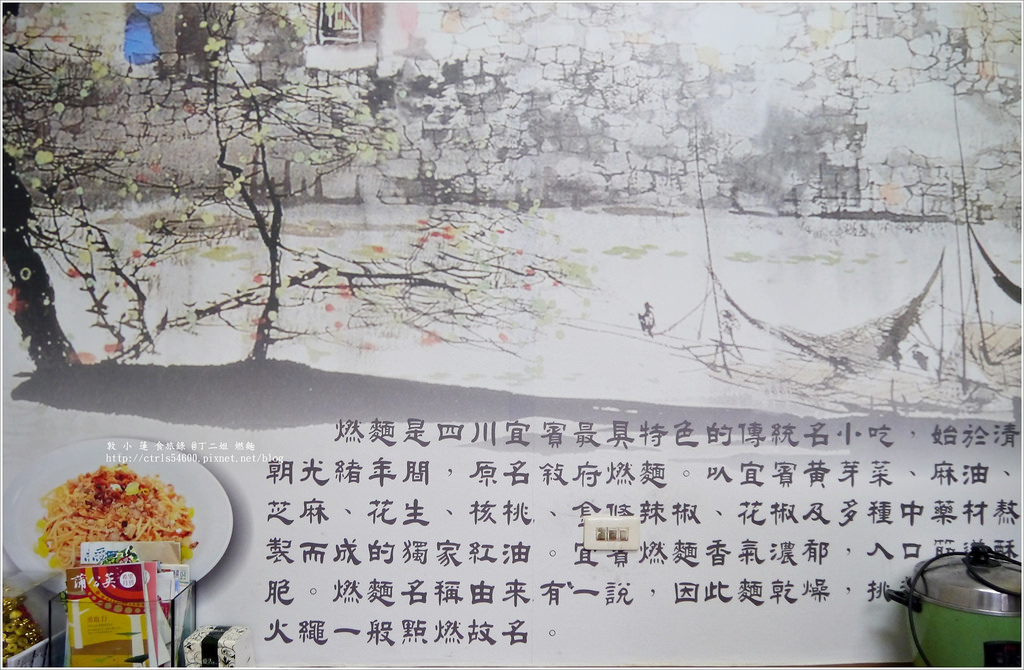 敦 小 蓮 食旅錄 @丁二姐 燃麵
http://ctrls54600.pixnet.net/blog
燃麵是四川宜賓最具特色的傳統名小吃，始於清
朝光緒年間，原名敘府燃麵。以宜賓黃芽菜、麻油、
芝麻、花生、核桃、金條辣椒、花椒及多種中藥材熬
製而成的獨家紅油。宜賓燃麵香氣濃郁，入口筋道酥
脆。燃麵名稱由來有一說，因此麵乾燥，挑
火繩一般點燃故名。
蒲公英